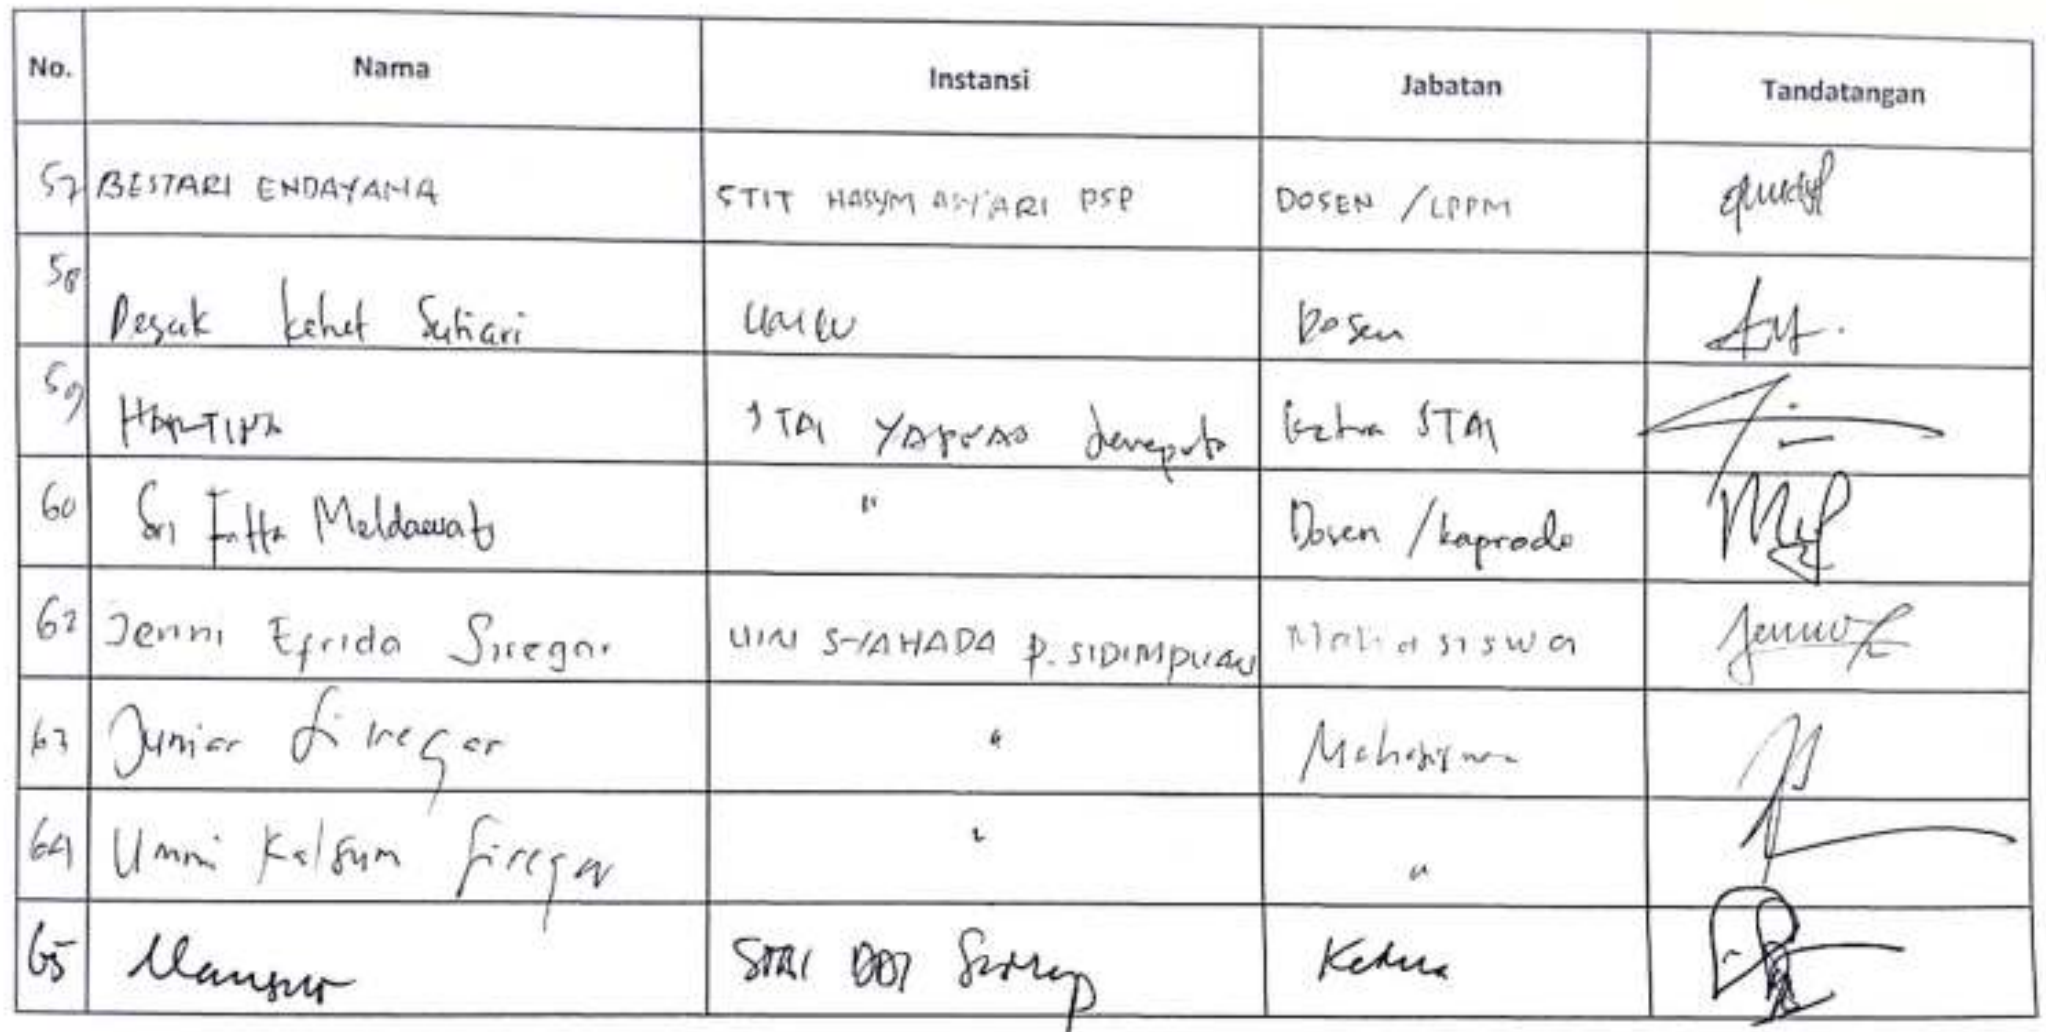 No. Nama Instansi Jabatan Tandatangan
57 BESTARI ENDAYANA STIT HASYM ASY'ARI PSP DOSEN /LPPM
58 Desak Ketut Sutiari Dosen
59 HARTINA STAI YAPNAS Jeneponto Ketua STAI
60 Sri Fatta Meldawati " Dosen /kaprodi
62 Jenni Efrida Siregar UIN SYAHADA P. SIDIMPUAN Mahasiswa
63 Juniar Siregar " Mahasiswa
64 Ummi Kalsum Siregar " "
65 Mansur STAI DDI Sidrap Ketua